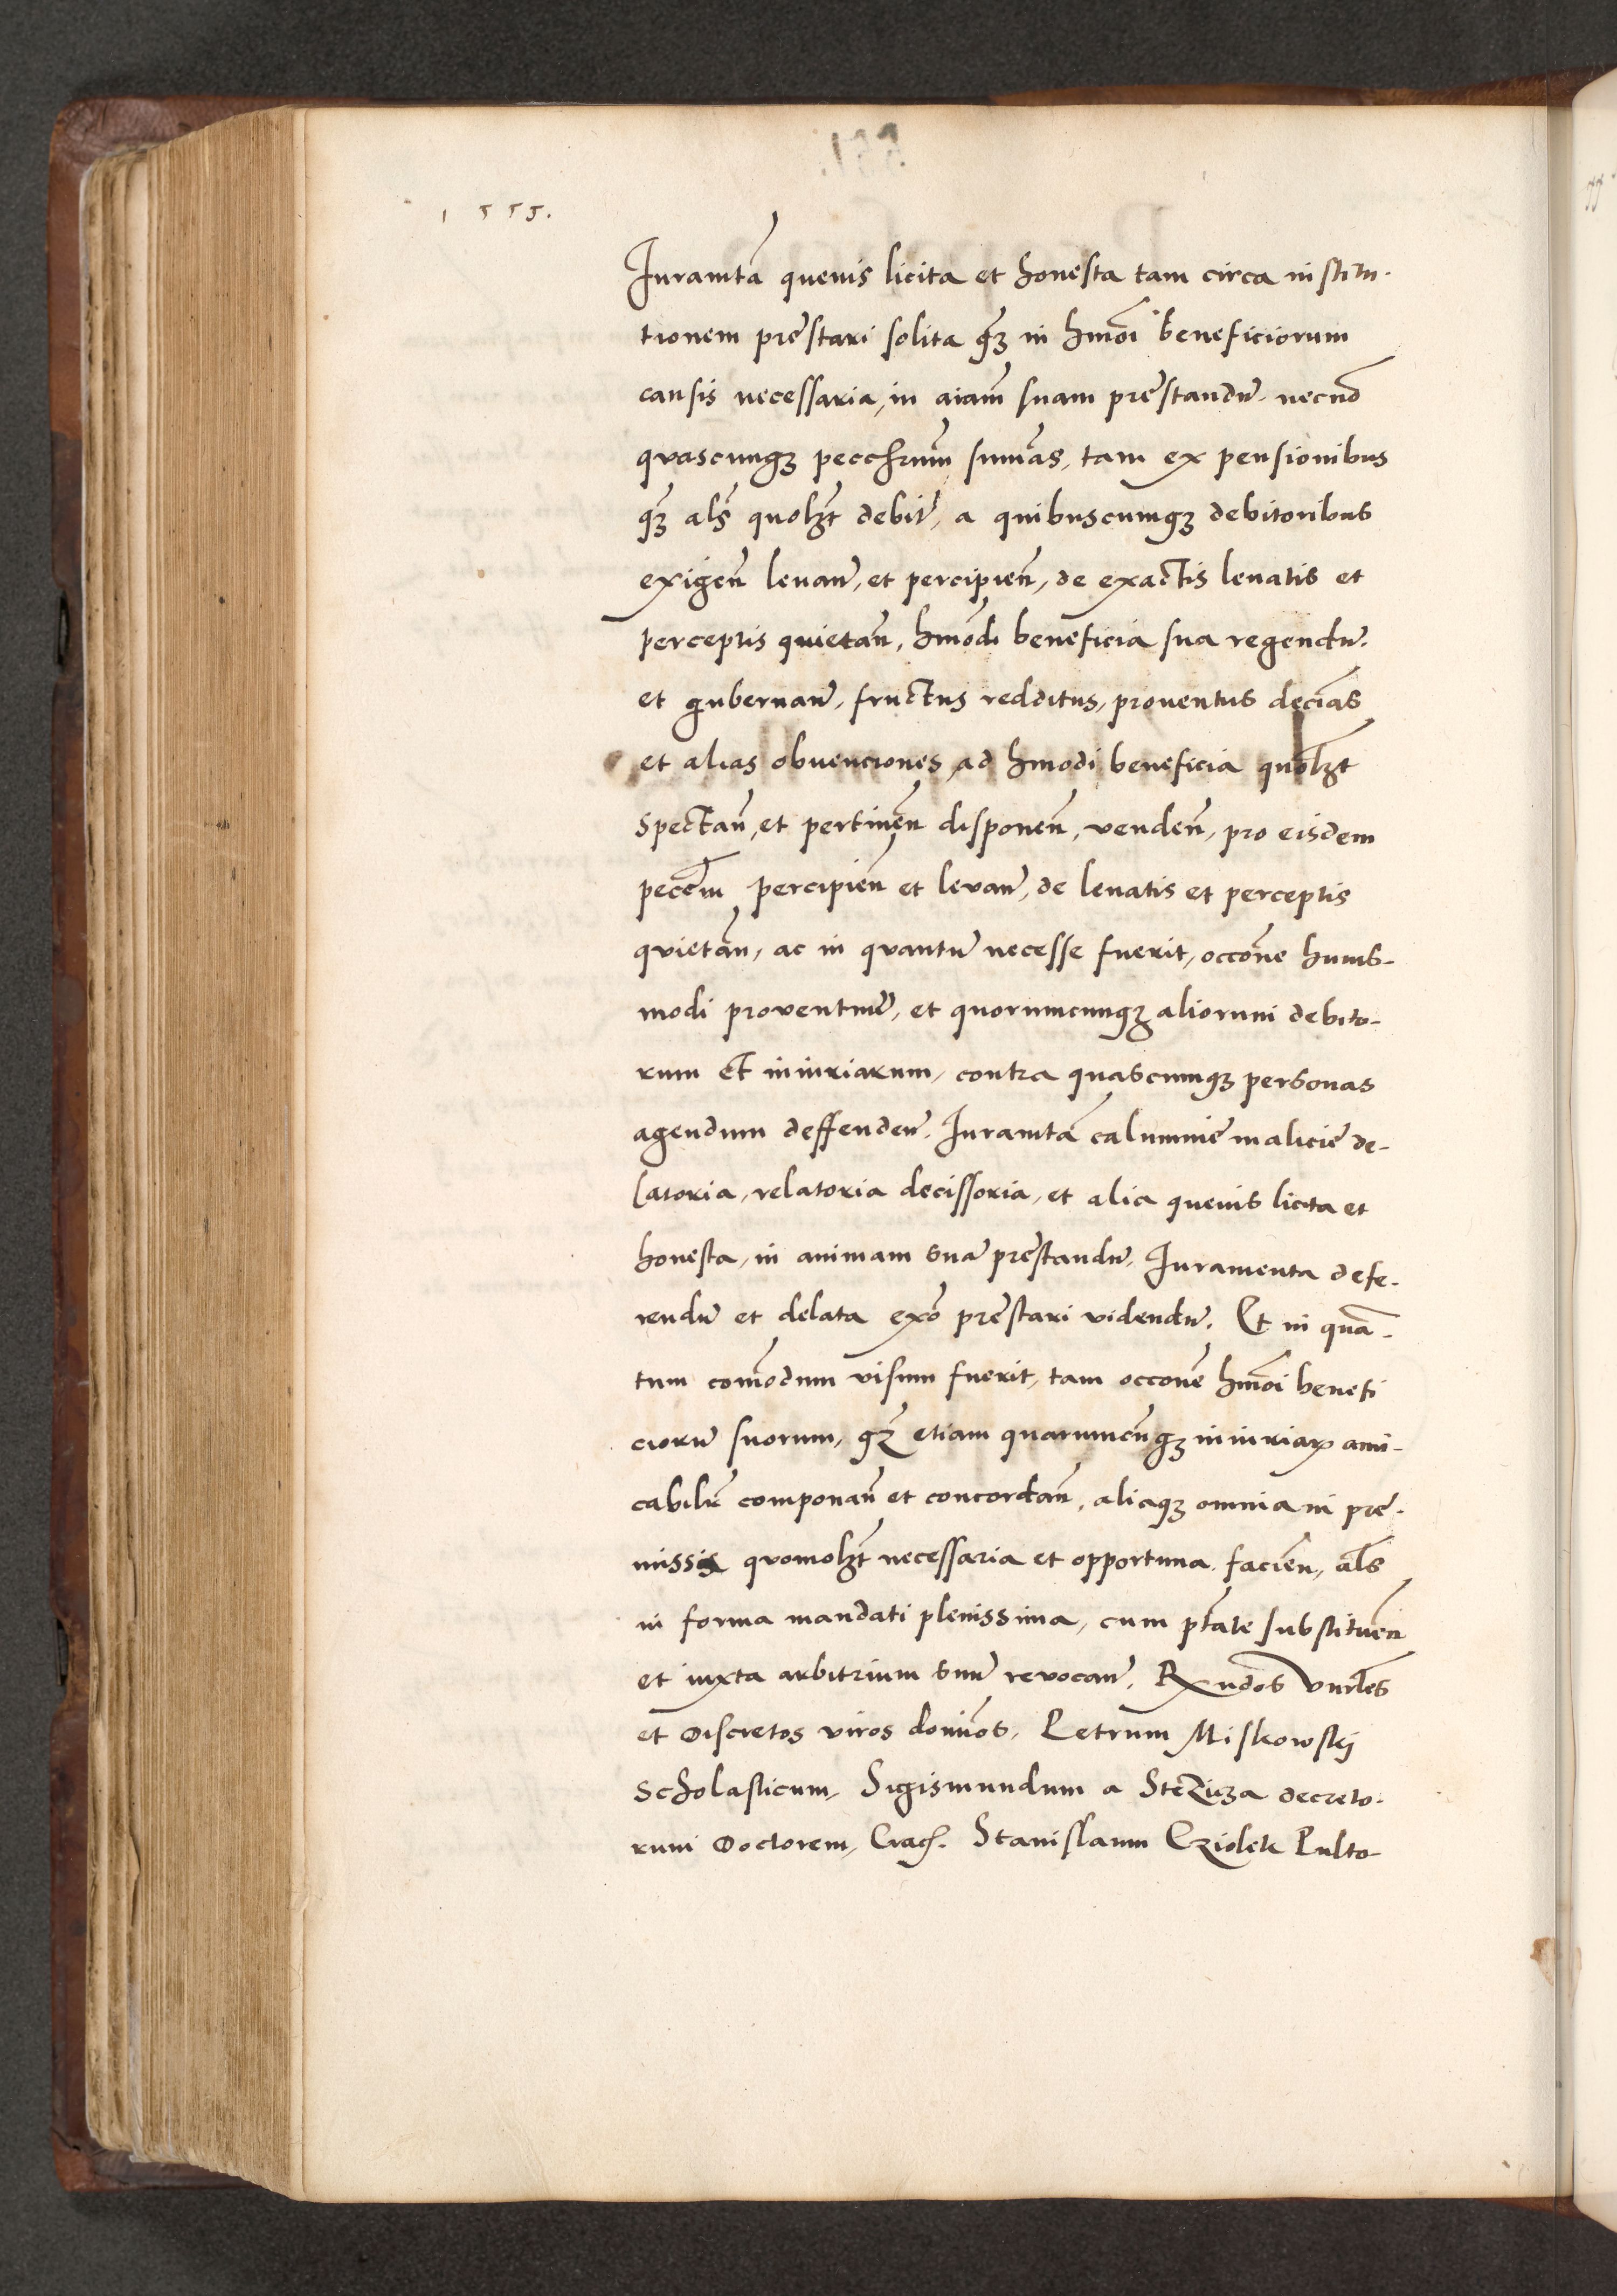 1555.
Iuramta quevis licita et honesta tam circa institu-
tionem prestari solita q̃ in hmoi beneficiorum
causis necessaria, in aiam suam prestandũ. necnõ
quascunq̃ pecchrum sumas, tam ex pensionibus
q̃ als quolzt debit̃, a quibuscumq̃ debitoribus
exigeñ levañ, et percipieñ, de exactis levatis et
perceptis quietañ, hmodi beneficia sua regendũ.
et gubernañ, fructus redditus, proventus decias
et alias obvenciones ad hmodi beneficia quolzt
spectañ, et pertineñ disponeñ, vendeñ, pro eisdem
pecem percipieñ et levañ, de levatis et perceptis
quietañ, ac in quantũ necesse fuerit, occõne huius-
modi proventuũ, et quorumcunq̃ aliorum debito-
rum et iniuriarum, contra quascumq̃ personas
agendum deffendeñ. Iuramta calumnie malicie de-
latoria, relatoria decissoria, et alia quevis licita et
honesta, in animam suã prestandũ. Iuramenta defe-
rendũ et delata exõ prestari videndũ. Et in quã-
tum comodum visum fuerit, tam occone hmoi benefi
ciorũ suorum, q̃ etiam quarumcũq̃ iniuriaꝝ ami-
cabilr̃ componañ et concordañ, aliaq̃ omnia in pre-
missis quomolzt necessaria et opportuna facieñ, als
in forma mandati plenissima, cum ptate substitueñ
et iuxta arbitrium suũ revocañ. Rxndos Vnrles
et Discretos viros domnos, Petrum Miskowskj
Scholasticum, Sigismundum a Stezicza decreto-
rum Doctorem, Crach. Stanislaum Cziolek Pulto-